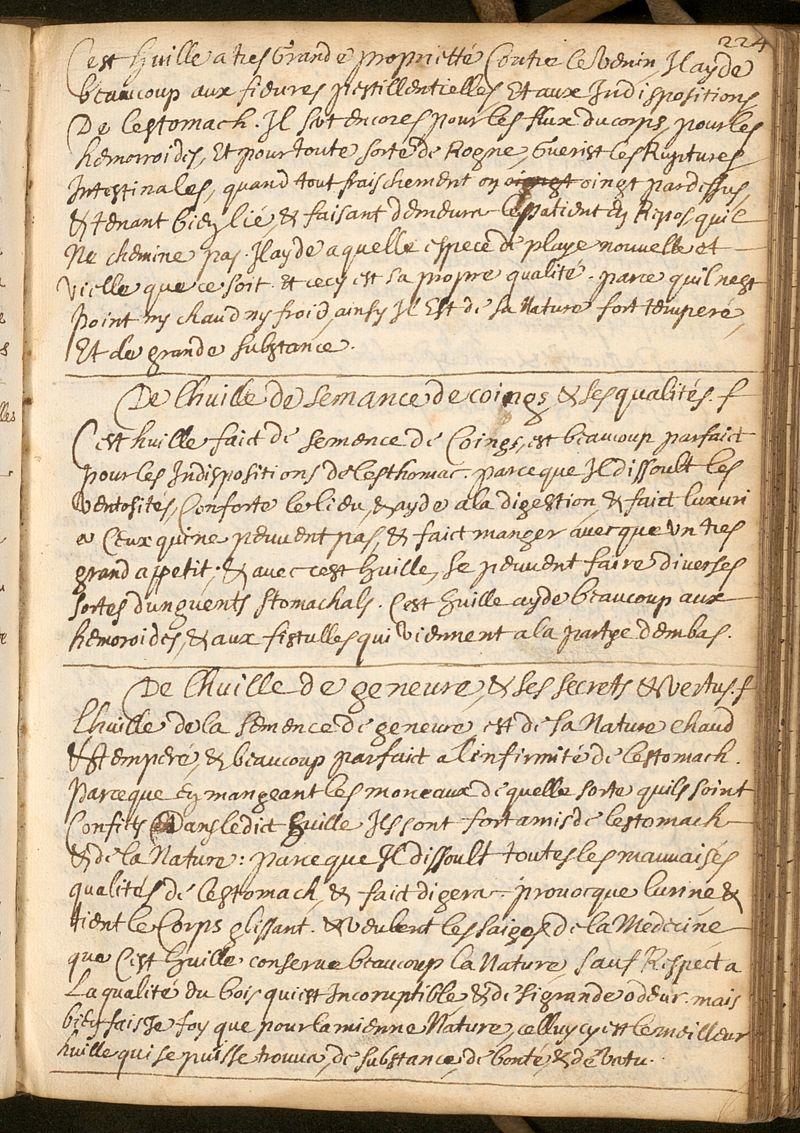 224
C'est huille a tres Grande proprietté Contre le Venin, Il ayde
beaucoup aux fieures pestillentielles Et aux Indispositions
De lestomach. Il sert encores pour les flux du corps, pour les
hemorroides, Et pour toute sorte de Rogne, Guerist les Ruptures
Intestinales, quand tout fraischement on oingt pardessus,
& tenant bien lié, & faisant demeurer le patient en Repos quil
Ne chemine pas. Il ayde a quelle espece de playe nouvelle et
vielle que ce soit. Et cecy est sa propre qualité. parce quil nest
point ny chaud ny froid, ainsy Il Est de sa Nature fort temperé,
Et de grande substance.
De lhuille de semance de coings & ses qualités. f
C'est huille faict de semence de Coings, est beaucoup parfaict
pour les Indispositions de lesthomac. parce que Il dissoult les
Ventosités, Conforte le lieu, & ayde a la digestion, & faict luxuri
a Ceux qui ne peuvent pas, & faict manger avec que Un tres
grand appetit. & avec cest huille, se peuvent faire diverses
sortes dunguents stomachals. C'est huille ayde beaucoup aux
hemoroides, & aux fistulles qui Viennent a la partye dembas.
De lhuille de genevre, & ses secrets & vertus. f
Lhuille de la semence de genevre est de sa Nature chaud
& temperé, & beaucoup parfaict a linfirmité de lestomach.
parce que en mangeant les morceaux de quelle sorte quils soint
Confits Dans le dict huille Ils sont fort amis de lestomach
& de la Nature: parce que Il dissoult toutes les mauvaises
qualités de lestomach, & faict digerer. provocque lurine &
tient le Corps glissant. & veulent les saiges de la Medecine
que C'est huille conserve beaucoup la Nature, sauf Respect a
La qualité du bois qui est Incoruptible, & de si grande odeur. mais
bien fais Je foy que pour la mienne Nature, celluy cy est le meilleur
huille qui se puisse trouver, de substance, de bonté, & de vertu.